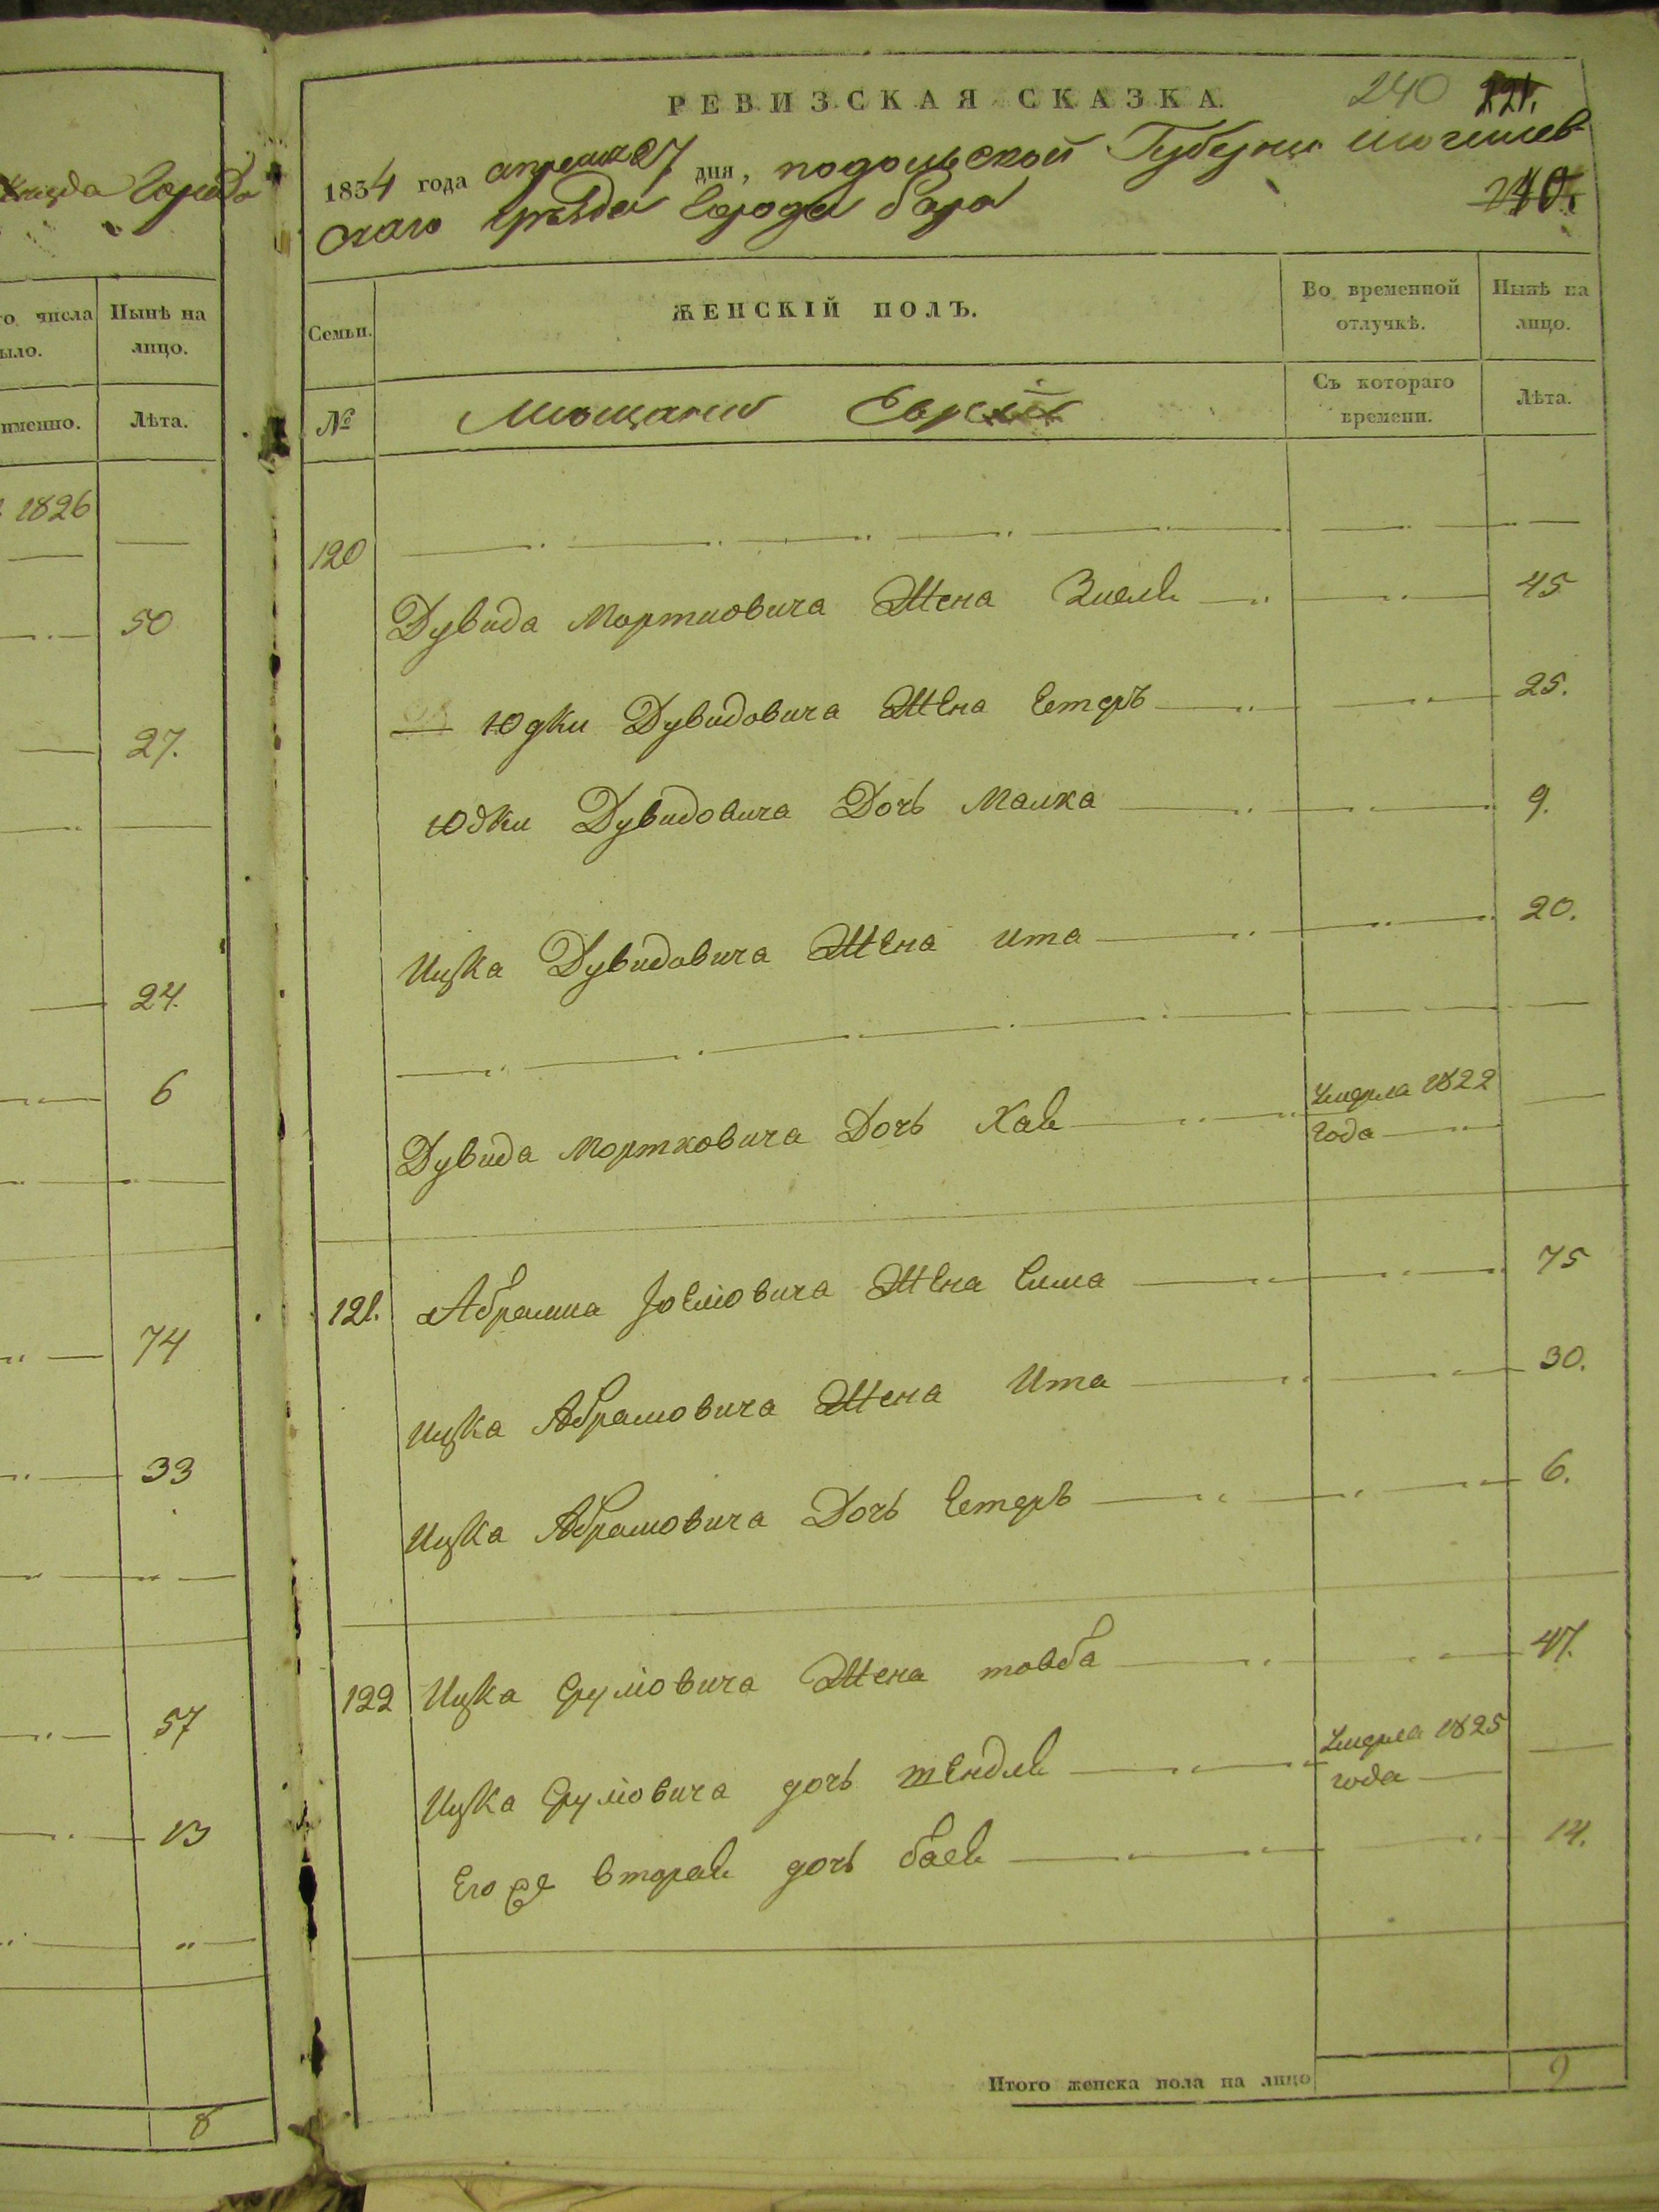 РЕВИЗСКАЯ СКАЗКА.
240 221.
1834 года апреля 27 дня, подольской Губернии могилев-
скаго уезда Города бара
240.
уезда Города
го числа
ыло.
Нынѣ на
лицо.
именно.
Лѣта.
1826
50
27.
24.
6
74
33
57
13
"
8
Семьи.
ЖЕНСКІЙ ПОЛЪ.
Во временной
отлучкѣ.
Нынѣ на
лицо.
№
Мещане Евреи
Съ котораго
времени.
Лѣта.
120
Дувида Мортковича Жена 45
Юдки Дувидовича Жена Естеръ 25.
Юдки Дувидовича Дочь Малка 9.
Ицка Дувидовича Жена Ита 20.
Дувида Мортковича Дочь Хая Умерла 1822
года
121. Абрама Жена Сима 75
Ицка Абрамовича Жена Ита 30.
Ицка Абрамовича Дочь Естеръ 6.
122 Ицка Срулiовича Жена товба 47.
Ицка Срулiовича дочь шендля Умерла 1825
года
Его же вторая дочь бася 14.
Итого женска пола на лицо 9